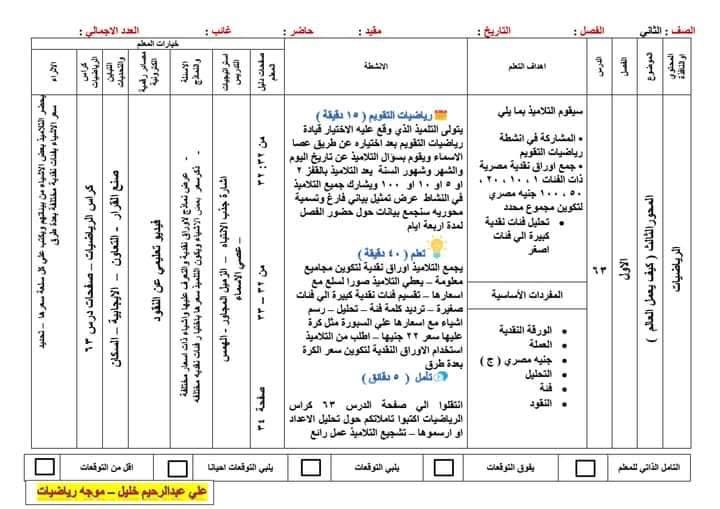 الصف : الثاني الفصل : التاريخ : مقيد : حاضر : غائب : العدد الاجمالي :
المحتوي او النافذة
الموضوع
الفصل
الدرس
اهداف التعلم
الانشطة
خيارات المعلم
صفحات دليل المعلم
استراتيجيات التدريس
الاسئلة والنماذج
مصادر رقمية الكترونية
القيم والتحديات
كراس الرياضيات
الاثراء
الرياضيات
المحورالثالث ( كيف يعمل العالم )
الاول
٦٣
سيقوم التلاميذ بما يلي
• المشاركة في انشطة
رياضيات التقويم
• جمع اوراق نقدية مصرية
ذات الفئات ١ ، ١٠ ، ٢٠ ،
٥٠ ، ١٠٠ جنيه مصري
لتكوين مجموع محدد
• تحليل فئات نقدية
كبيرة الي فئات
اصغر
المفردات الأساسية
• الورقة النقدية
• العملة
• جنيه مصري ( ج )
• التحليل
• فئة
• النقود
رياضيات التقويم ( ١٥ دقيقة )
يتولى التلميذ الذي وقع عليه الاختيار قيادة
رياضيات التقويم بعد اختياره عن طريق عصا
الاسماء ويقوم بسؤال التلاميذ عن تاريخ اليوم
والشهر وشهور السنة يعد التلاميذ بالقفز ٢
او ٥ او ١٠ او ١٠٠ ويشارك جميع التلاميذ
في النشاط عرض تمثيل بياني فارغ وتسمية
محوريه سنجمع بيانات حول حضور الفصل
لمدة اربعة ايام
تعلم ( ٤٠ دقيقة )
يجمع التلاميذ اوراق نقدية لتكوين مجاميع
معلومة – يعطي التلاميذ صورا لسلع مع
اسعارها – تقسيم فئات نقدية كبيرة الي فئات
صغيرة – ترديد كلمة فئة – تحليل – رسم
اشياء مع اسعارها علي السبورة مثل كرة
عليها سعر ٢٢ جنيها – اطلب من التلاميذ
استخدام الاوراق النقدية لتكوين سعر الكرة
بعدة طرق
تأمل ( ٥ دقائق )
انتقلوا الي صفحة الدرس ٦٣ كراس
الرياضيات اكتبوا تاملاتكم حول تحليل الاعداد
او ارسموها – تشجيع التلاميذ عمل رائع
من ٣٢: ٣٢
من ٣٢ – ٣٣
صفحة ٣٤
اشارة جذب الانتباه – الزميل المجاور - الهمس
– عصي الاسماء
- عرض نماذج لاوراق نقدية والتعرف عليها واشياء ذات اسعار مختلفة
- ذكر سعر بعض الاشياء ويكون التلميذ سعرها باختيار فئات نقديه مختلفه
فيديو تعليمي عن النقود
صنع القرار - التعاون – الايجابية – السكان
كراس الرياضيات – صفحات درس ٦٣
يحضر التلاميذ بعض الاشياء من بيئاتهم ويكتب علي كل سلعة سعرها – تحديد
سعر الاشياء بفئات نقدية مختلفة بعدة طرق
التامل الذاتي للمعلم
يفوق التوقعات
يلبي التوقعات
يلبي التوقعات احيانا
اقل من التوقعات
علي عبدالرحيم خليل – موجه رياضيات